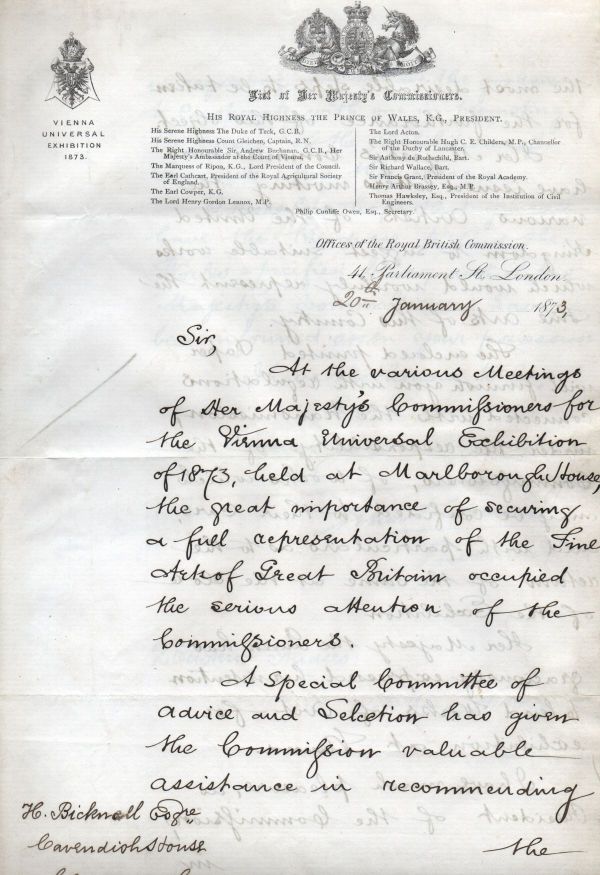 VIENNA
UNIVERSAL
EXHIBITION
1873.
List of Her Majesty's Commissioners.
HIS ROYAL HIGHNESS THE PRINCE OF WALES, K.G., PRESIDENT.
His Serene Highness The Duke of Teck, G.C.B.
His Serene Highness Count Gleichen, Captain, R.N.
The Right Honourable Sir Andrew Buchanan, G.C.B., Her
Majesty's Ambassador at the Court of Vienna.
The Marquess of Ripon, K.G., Lord President of the Council.
The Earl Cathcart, President of the Royal Agricultural Society
of England.
The Earl Cowper, K.G.
The Lord Henry Gordon Lennox, M.P.
The Lord Acton.
The Right Honourable Hugh C. E. Childers, M.P., Chancellor
of the Duchy of Lancaster.
Sir Anthony de Rothschild, Bart.
Sir Richard Wallace, Bart.
Sir Francis Grant, President of the Royal Academy.
Henry Arthur Brassey, Esq., M.P.
Thomas Hawksley, Esq., President of the Institution of Civil
Engineers.
Philip Cunliffe Owen, Esq., Secretary.
Offices of the Royal British Commission.
41, Parliament St. London
20th January 1873,
Sir,
At the various Meetings
of Her Majesty's Commissioners for
the Vienna Universal Exhibition
of 1873, held at Marlborough House,
the great importance of securing
a full representation of the Fine
Arts of Great Britain occupied
the serious attention of the
Commissioners.
A Special Committee of
advice and Selection has given
the Commission valuable
assistance in recommending
H. Bicknell Esqre
Cavendish House
the